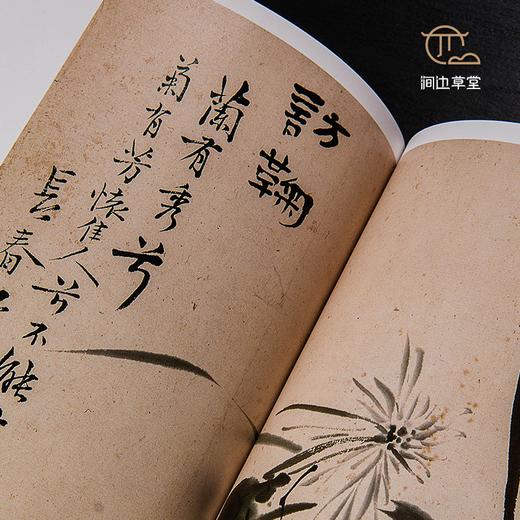 涧边草堂
訪鞠
蘭有秀兮
菊有芳懷佳人兮不能
長春